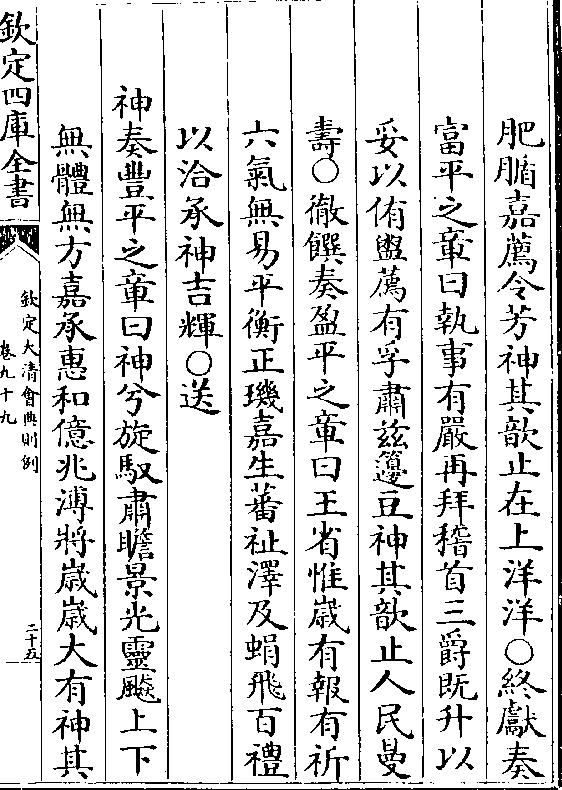 肥腯嘉薦令芳神其歆止在上洋洋○終獻奏
富平之章曰執事有嚴再拜稽首三爵既升以
妥以侑盥薦有孚肅兹籩豆神其歆止人民曼
壽○徹饌奏盈平之章曰王省惟嵗有報有祈
六氣無易平衡正璣嘉生蕃祉澤及蜎飛百禮
以洽承神吉輝○送
神奏豐平之章曰神兮旋馭肅瞻景光靈飈上下
無體無方嘉承惠和億兆溥將嵗嵗大有神其
欽定四庫全書
欽定大清會典則例
卷九十九
二十五